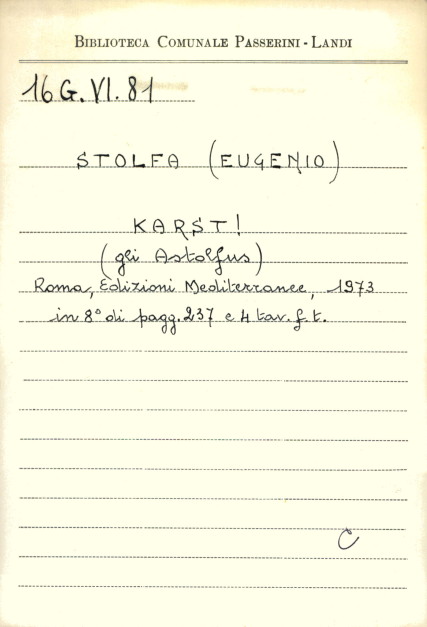 BIBLIOTECA COMUNALE PASSERINI - LANDI
16 G. VI. 81
STOLFA (EUGENIO)
KARST!
(gli Astolfus)
Roma, Edizioni Mediterranee, 1973
in 8° di pagg. 237 e 4 tav. f. t.
C